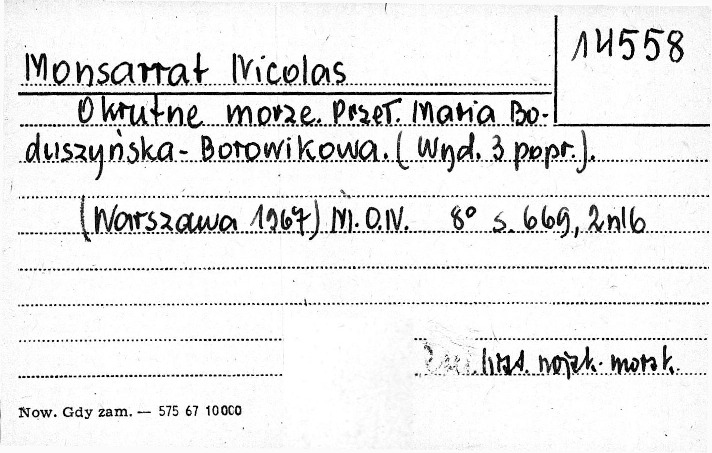 14558
Monsarrat Nicolas
Okrutne morze. Przeł. Maria Bo-
duszyńska-Borowikowa. (Wyd. 3 popr.).
(Warszawa 1967) M.O.N. 8° s. 669, 2nlb
hist. wojsk. morsk.
Now. Gdy zam. — 575 67 10000